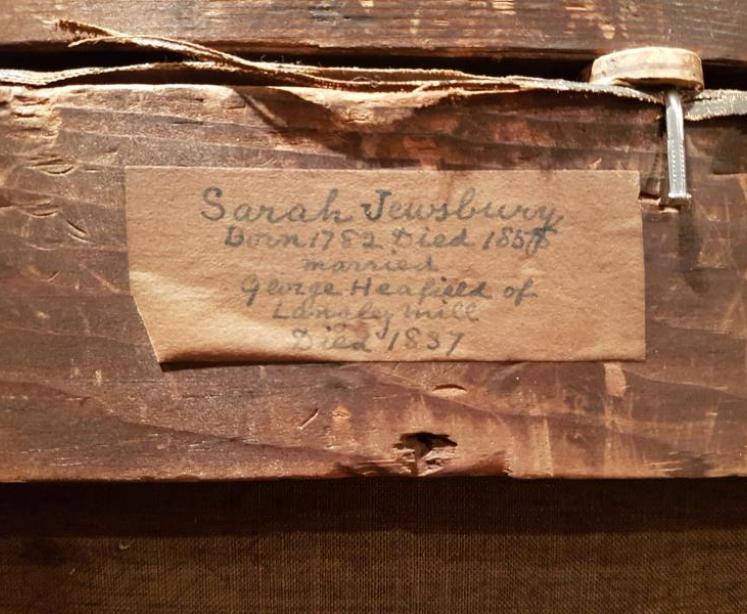 Sarah Jewsbury
Born 1782 Died
married
George Heafield of
Langley Mill
Died 1837